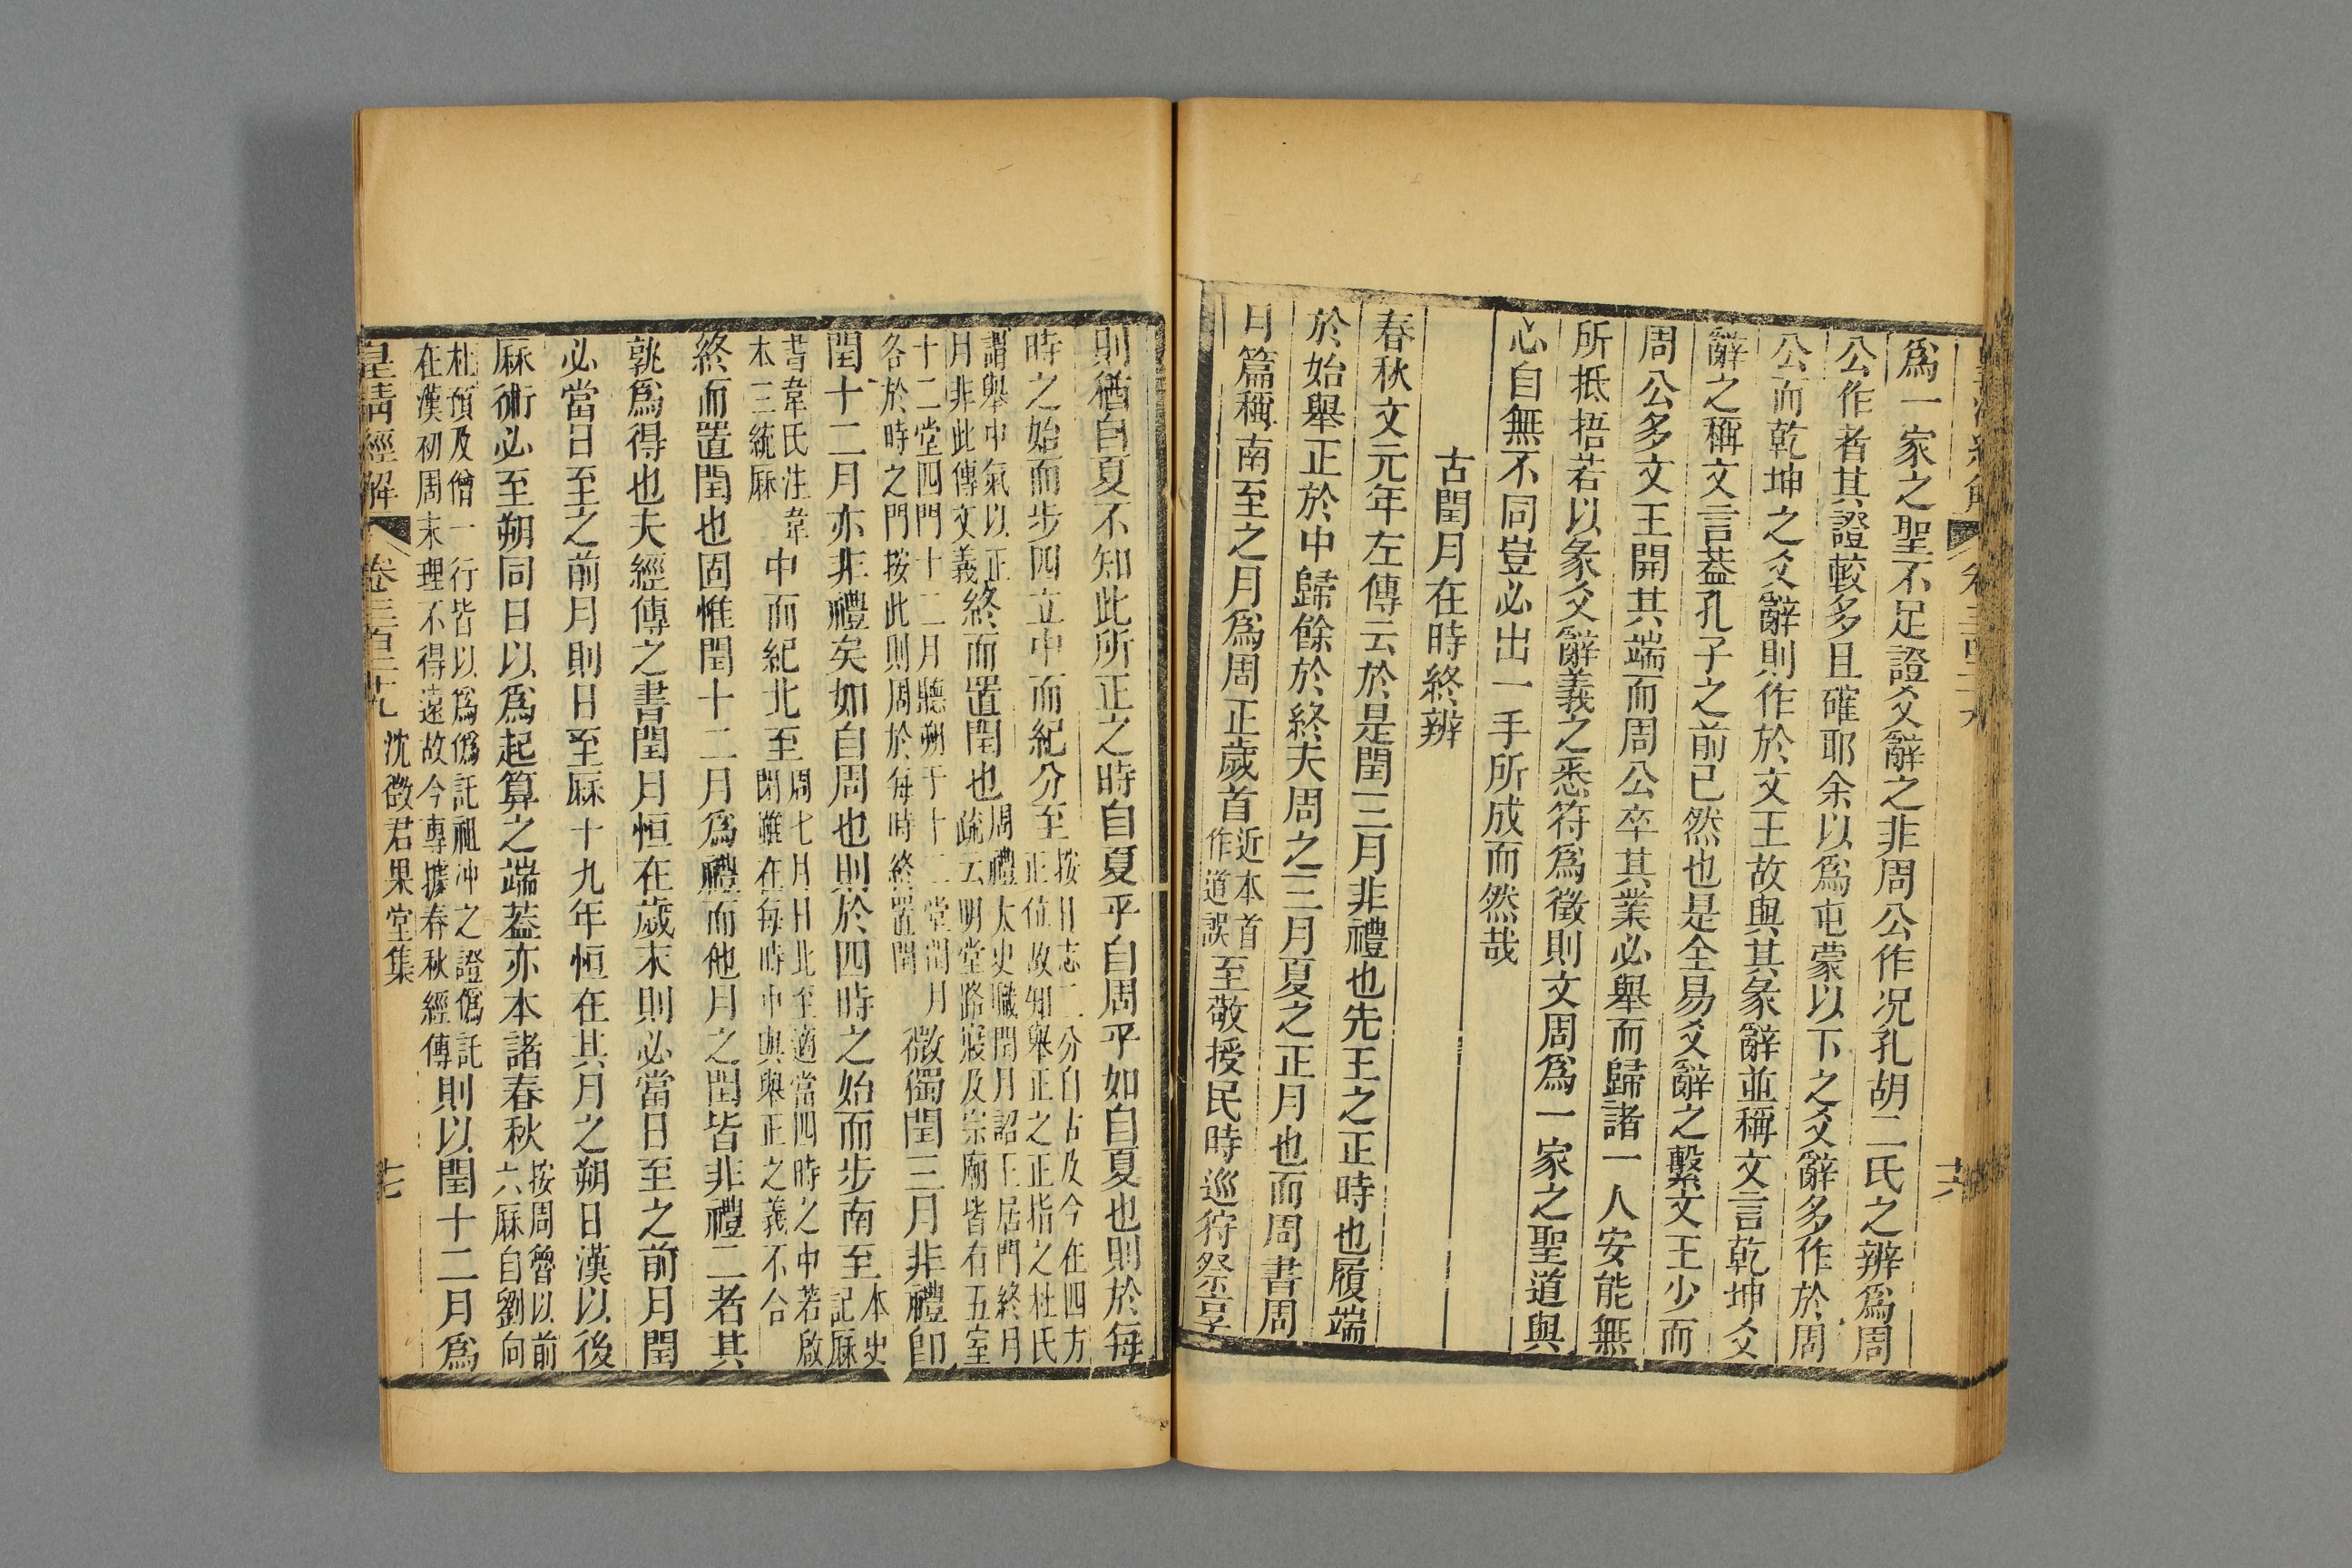 爲一家之聖不足證爻辭之非周公作况孔胡二氏之辨爲周
公作者其證較多且確耶余以爲屯蒙以下之爻辭多作於周
公而乾坤之爻辭則作於文王故與其彖辭並稱文言乾坤爻
辭之稱文言葢孔子之前已然也是全易爻辭之繫文王少而
周公多文王開其端而周公卒其業必舉而歸諸一人安能無
所抵捂若以彖爻辭義之悉符爲徵則文周爲一家之聖道與
心自無不同豈必出一手所成而然哉
古閏月在時終辨
春秋文元年左傳云於是閏三月非禮也先王之正時也履端
於始舉正於中歸餘於終夫周之三月夏之正月也而周書周
月篇稱南至之月爲周正歲首近本首作道誤至敬授民時巡狩祭享
十六
則猶自夏不知此所正之時自夏乎自周乎如自夏也則於每
時之始而步四立中而紀分至按日志二分自古及今在四方正位故知舉正之正指之杜氏
謂舉中氣以正月非此傳文義終而置閏也周禮太史職閏月詔王居門終月疏云明堂路寢及宗廟皆有五室
十二堂四門十二月聽朔于十二堂閏月各於時之門按此則周於每時終置閏微獨閏三月非禮卽
閏十二月亦非禮矣如自周也則於四時之始而步南至本史記厤
書韋氏注韋本三統厤中而紀北至周七月日北至適當四時之中若啟閉雖在每時中與舉正之義不合
終而置閏也固惟閏十二月爲禮而他月之閏皆非禮二者其
孰爲得也夫經傳之書閏月恒在歲末則必當日至之前月閏
必當日至之前月則日至厤十九年恒在其月之朔日漢以後
厤術必至朔同日以爲起算之端葢亦本諸春秋按周魯以前六厤自劉向
杜預及僧一行皆以爲僞託祖冲之證僞託在漢初周末理不得遠故今專據春秋經傳則以閏十二月爲
皇清經解 卷三百二十九 沈徵君果堂集 十七